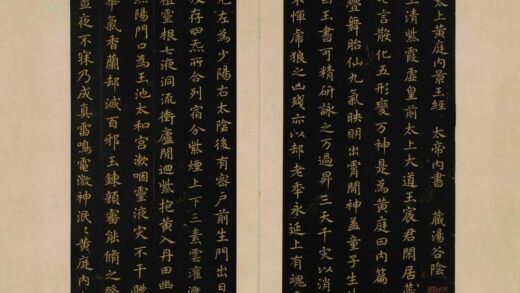 太上黃庭內景玉經 太帝內書 藏湯谷陰
上清紫霞虛皇前太上大道玉宸君閒居蘂
七言散化五形變万神是為黃庭曰內篇
疊舞胎仙九氣映明出霄間神盖童子生
曰玉書可精研詠之万過昇三天千灾以消
不憚虎狼之凶殘亦以却老年永延上有魂
左為少陽右太陰後有密戶前生門出日
及存四炁所合列宿分紫煙上下三素雲灌溉
植靈根七液洞流衝廬間迴紫抱黃入丹田幽
照陽門口為玉池太和宮漱咽靈液灾不干體
華氣香蘭却滅百邪玉錬顏審能脩之登
晝夜不寐乃成真雷鳴電激神泯〻黃庭內